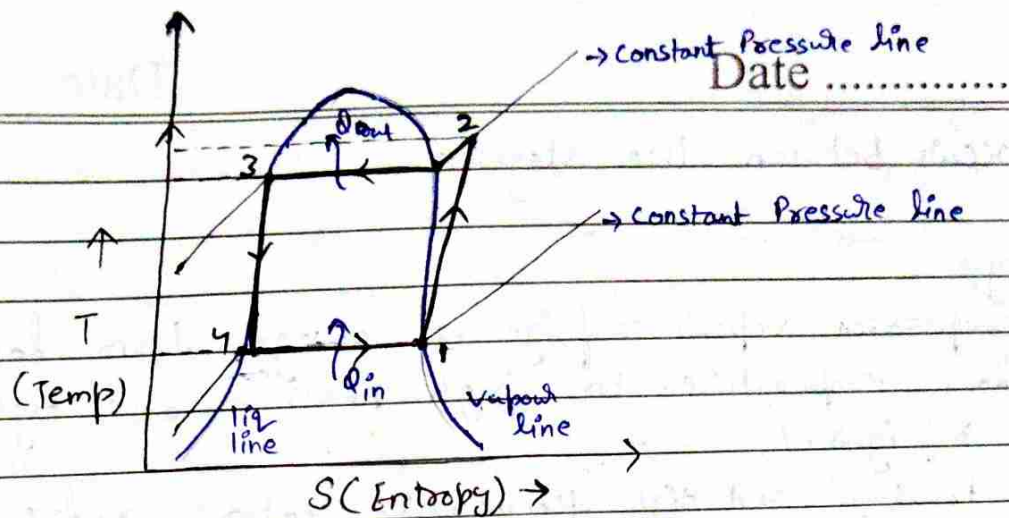 → Constant Pressure line
Date ..............
2
Qout
3
→ Constant Pressure line
T
(Temp)
4
1
Qin
liq
line
vapour
line
S (Entropy) →